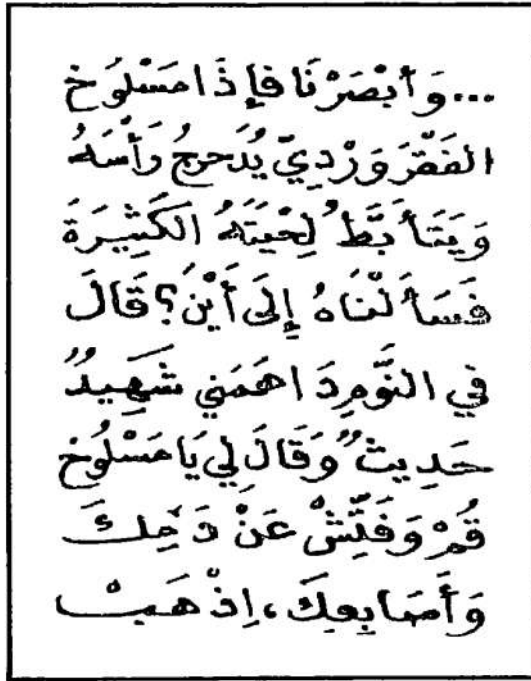 ...وَأبْصَرْنَا فَإِذَا مَسْلُوخ
الفَقْرَوَرْدِيّ يُدَحرِجُ رَأْسَهُ
وَيَتَأَبَّطُ لِحْيَتَهُ الكَثِيرَةَ
فَسَأَلْنَاهُ إِلَى أَيْنَ؟ قَالَ
في النَّوْمِ دَاهَمَني شَهِيدٌ
حَدِيثٌ وَقَالَ لِي يَا مَسْلُوخ
قُمْ وَفَتِّشْ عَنْ دَمِكَ
وَأَصَابِعِكَ، اِذْهَبْ